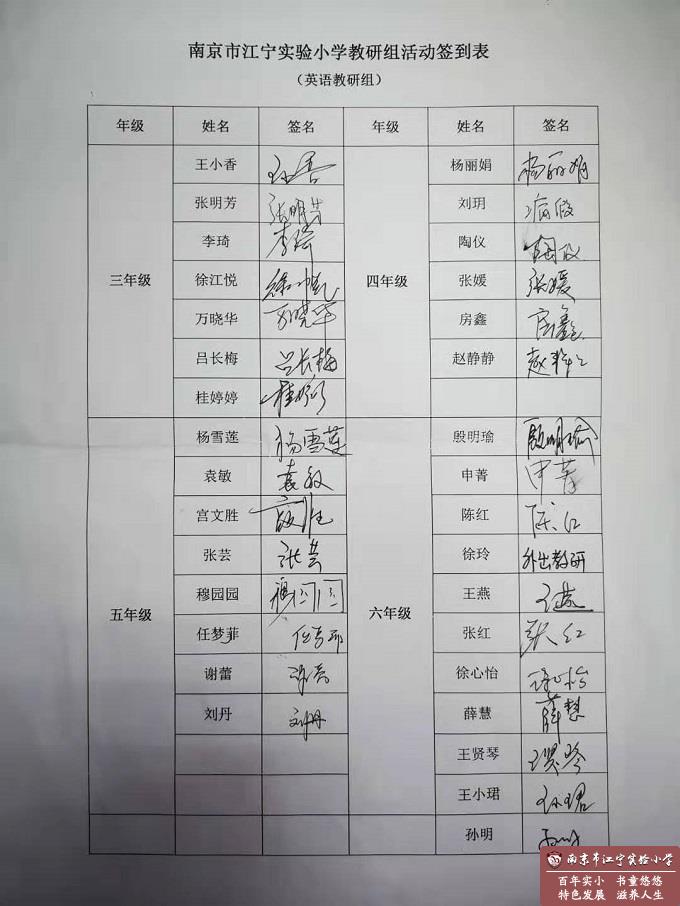 南京市江宁实验小学教研组活动签到表
（英语教研组）
年级 姓名 签名 年级 姓名 签名
王小香 杨丽娟 杨丽娟
张明芳 张明芳 刘玥 病假
李琦 李琦 陶仪 陶仪
三年级 徐江悦 四年级 张媛 张媛
万晓华 万晓华 房鑫 房鑫
吕长梅 吕长梅 赵静静 赵静静
桂婷婷 桂婷婷
杨雪莲 杨雪莲 殷明瑜 殷明瑜
袁敏 袁敏 申菁 申菁
宫文胜 陈红 陈红
张芸 张芸 徐玲 外出教研
穆园园 穆园园 王燕 王燕
五年级 六年级
任梦菲 任梦菲 张红 张红
谢蕾 谢蕾 徐心怡 徐心怡
刘丹 刘丹 薛慧 薛慧
王贤琴 王贤琴
王小珺 王小珺
孙明
南京市江宁实验小学
百年实小 书童悠悠
特色发展 滋养人生